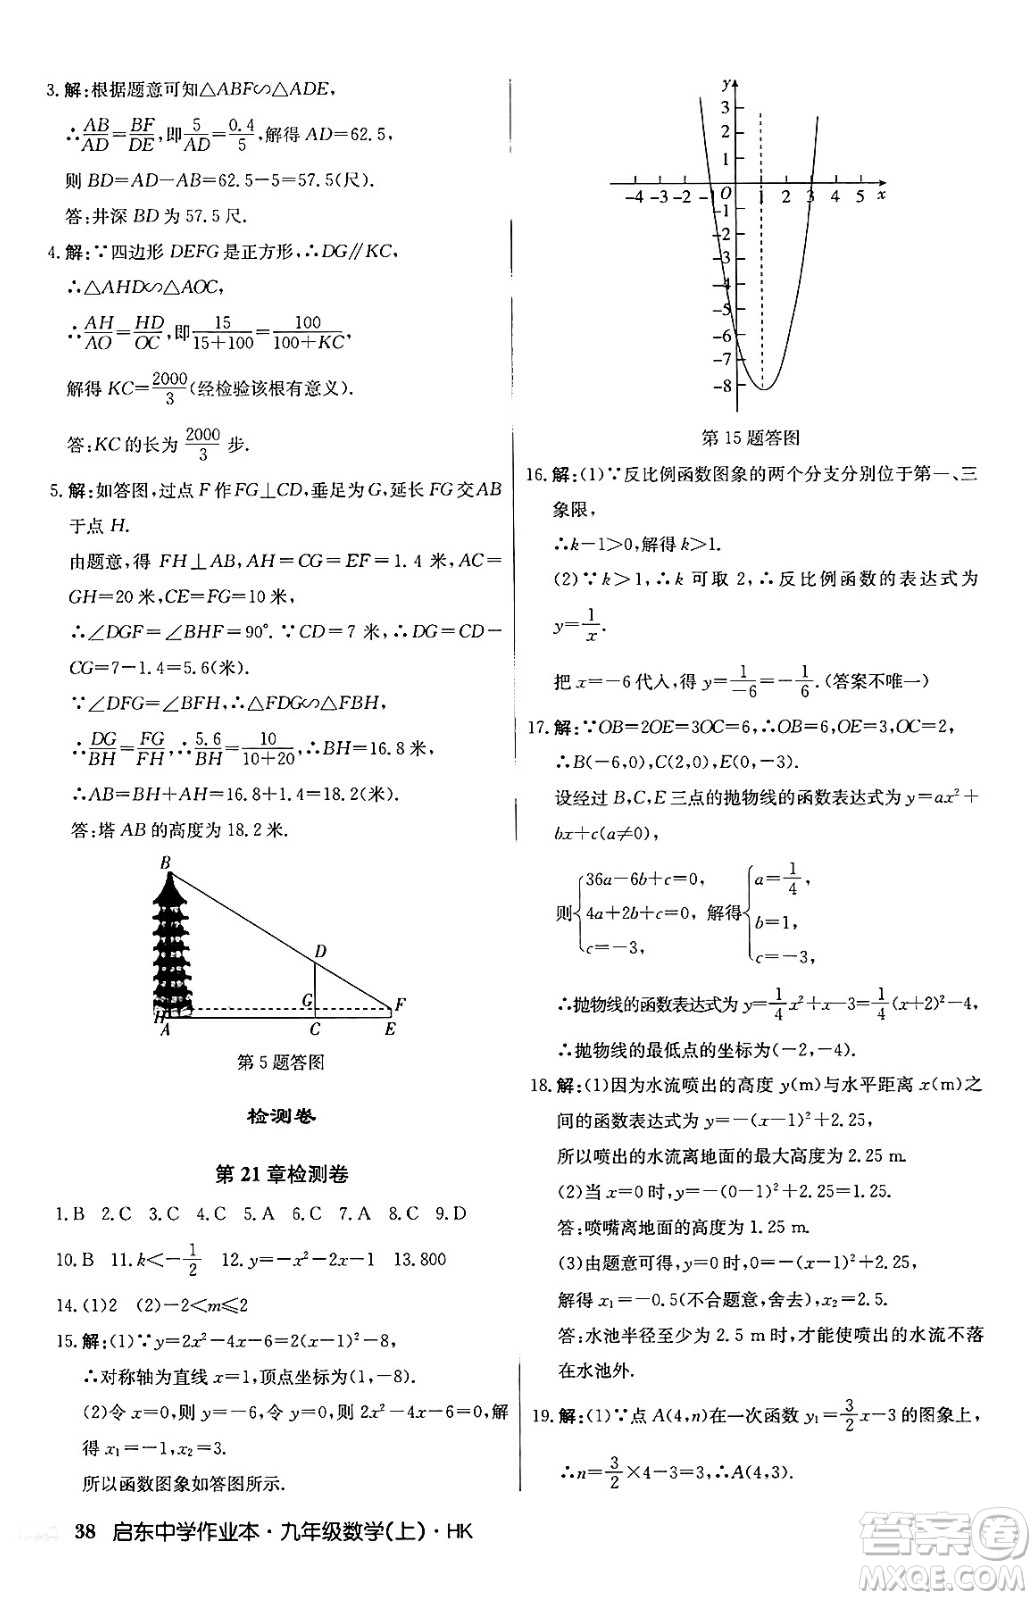 3. 解:根据题意可知△ABF∽△ADE,
∴AB/AD=BF/DE,即5/AD=0.4/5,解得 AD=62.5,
则 BD=AD-AB=62.5-5=57.5(尺).
答:井深 BD 为 57.5 尺.
4. 解:∵四边形 DEFG 是正方形,∴DG∥KC,
∴△AHD∽△AOC,
∴AH/AO=HD/OC,即15/(15+100)=100/(100+KC),
解得 KC=2000/3(经检验该根有意义).
答:KC 的长为 2000/3 步.
5. 解:如答图,过点 F 作 FG⊥CD,垂足为 G,延长 FG 交 AB
于点 H.
由题意,得 FH⊥AB,AH=CG=EF=1.4 米,AC=
GH=20 米,CE=FG=10 米,
∴∠DGF=∠BHF=90°.∵CD=7 米,∴DG=CD-
CG=7-1.4=5.6(米).
∵∠DFG=∠BFH,∴△FDG∽△FBH,
∴DG/BH=FG/FH,∴5.6/BH=10/(10+20),∴BH=16.8 米,
∴AB=BH+AH=16.8+1.4=18.2(米).
答:塔 AB 的高度为 18.2 米.
B
D
G
F
H
A
C
E
第 5 题答图
检测卷
第 21 章检测卷
1. B 2. C 3. C 4. C 5. A 6. C 7. A 8. C 9. D
10. B 11. k<-1/2 12. y=-x²-2x-1 13. 800
14. (1)2 (2)-2<m≤2
15. 解:(1)∵y=2x²-4x-6=2(x-1)²-8,
∴对称轴为直线 x=1,顶点坐标为(1,-8).
(2)令 x=0,则 y=-6,令 y=0,则 2x²-4x-6=0,解
得 x₁=-1,x₂=3.
所以函数图象如答图所示.
38 启东中学作业本·九年级数学(上)·HK
y
3
2
1
-4 -3 -2 -1 O 1 2 3 4 5 x
-1
-2
-3
-4
-5
-6
-7
-8
第 15 题答图
16. 解:(1)∵反比例函数图象的两个分支分别位于第一、三
象限,
∴k-1>0,解得 k>1.
(2)∵k>1,∴k 可取 2,∴反比例函数的表达式为
y=1/x.
把 x=-6 代入,得 y=1/-6=-1/6.(答案不唯一)
17. 解:∵OB=2OE=3OC=6,∴OB=6,OE=3,OC=2,
∴B(-6,0),C(2,0),E(0,-3).
设经过 B,C,E 三点的抛物线的函数表达式为 y=ax²+
bx+c(a≠0),
则{36a-6b+c=0, 4a+2b+c=0, c=-3, 解得{a=1/4, b=1, c=-3,
∴抛物线的函数表达式为 y=1/4x²+x-3=1/4(x+2)²-4,
∴抛物线的最低点的坐标为(-2,-4).
18. 解:(1)因为水流喷出的高度 y(m)与水平距离 x(m)之
间的函数表达式为 y=-(x-1)²+2.25,
所以喷出的水流离地面的最大高度为 2.25 m.
(2)当 x=0 时,y=-(0-1)²+2.25=1.25.
答:喷嘴离地面的高度为 1.25 m.
(3)由题意可得,y=0 时,0=-(x-1)²+2.25,
解得 x₁=-0.5(不合题意,舍去),x₂=2.5.
答:水池半径至少为 2.5 m 时,才能使喷出的水流不落
在水池外.
19. 解:(1)∵点 A(4,n)在一次函数 y₁=3/2x-3 的图象上,
∴n=3/2×4-3=3,∴A(4,3).
答案圈
MXQE.COM